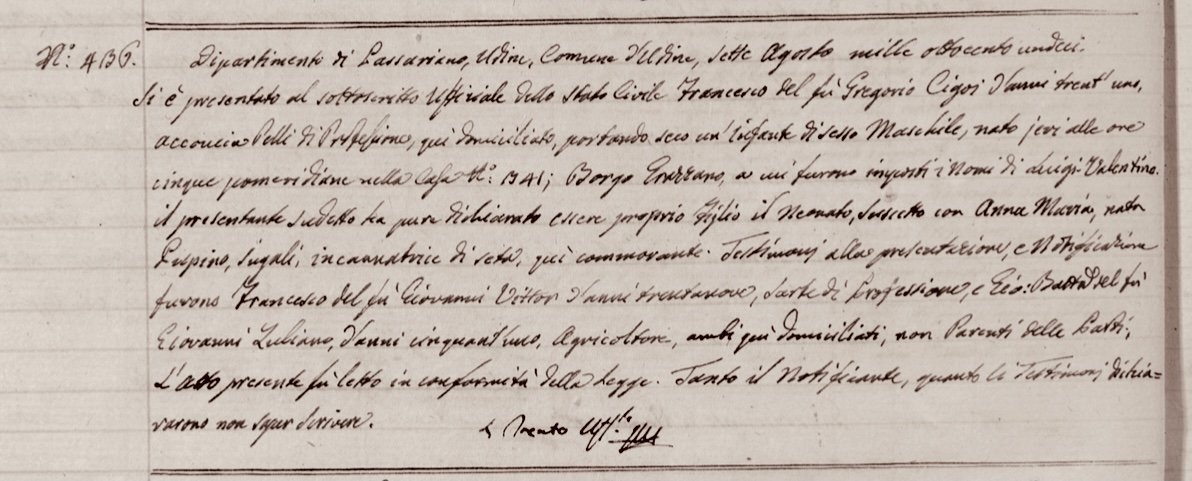 N.º 436.
Dipartimento di Passariano, Udine, Comune d'Udine, sette Agosto mille ottocento undeci.
Si è presentato al sottoscritto Uffiziale dello Stato Civile Francesco del fù Gregorio Cigoi d'anni trent'uno,
acconcia Pelli di Professione, quì domiciliato, portando seco un'Infante di sesso Maschile, nato jeri alle ore
cinque pomeridiane nella Casa N.º 1341; Borgo Grazzano, a cui furono imposti i Nomi di Luigi-Valentino.
il presentante sudetto ha pure dichiarato essere proprio Figlio il Neonato, suscetto con Anna Maria, nata
Jugali, incannatrice di seta, quì commorante. Testimonj alla presentazione, e Notificazione
furono Francesco del fù Giovanni Vittor d'anni trentanove, Sarte di professione, e Gio: Batta del fù
Giovanni Zuliano, d'anni cinquant'uno, Agricoltore, ambi quì domiciliati, non Parenti delle Parti;
L'atto presente fù letto in conformità della Legge. Tanto il Notificante, quanto li Testimonj dichia=
rarono non saper scrivere.
Trento Uff.le